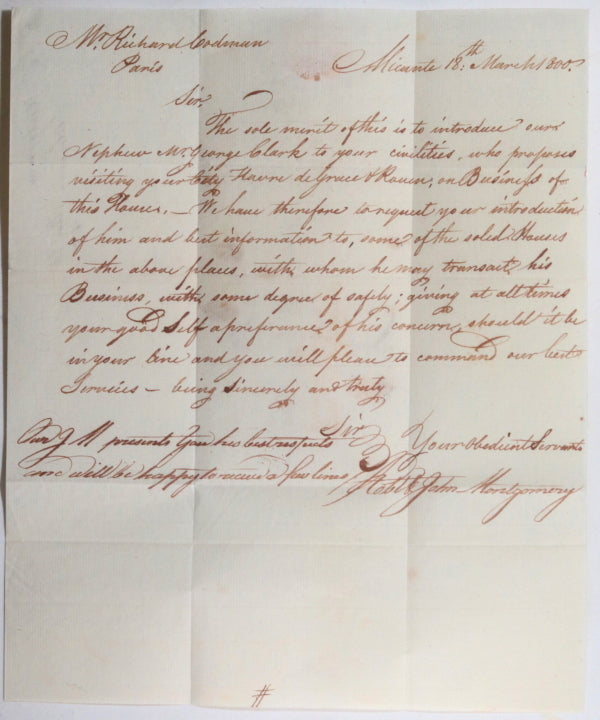 Mr. Richard Codman
Paris
Alicante 18th. March 1800.
Sir,
The sole merit of this is to introduce our
Nephew Mr. George Clark to your civilities, who proposes
visiting your City, Havre de Grace & Rouen, on Business of
this House. — We have therefore to request your introduction
of him and best information to, some of the solid Houses
in the above places, with whom he may transact his
Business, with some degree of safety; giving at all times
your good Self a preferance of his concern, should it be
in your line and you will please to command our best
Services — being sincerely and truly
Sir
Our J M presents You his best respects
Your Obedient Servants
and will be happy to receive a few lines
Robt. & John Montgomery
#